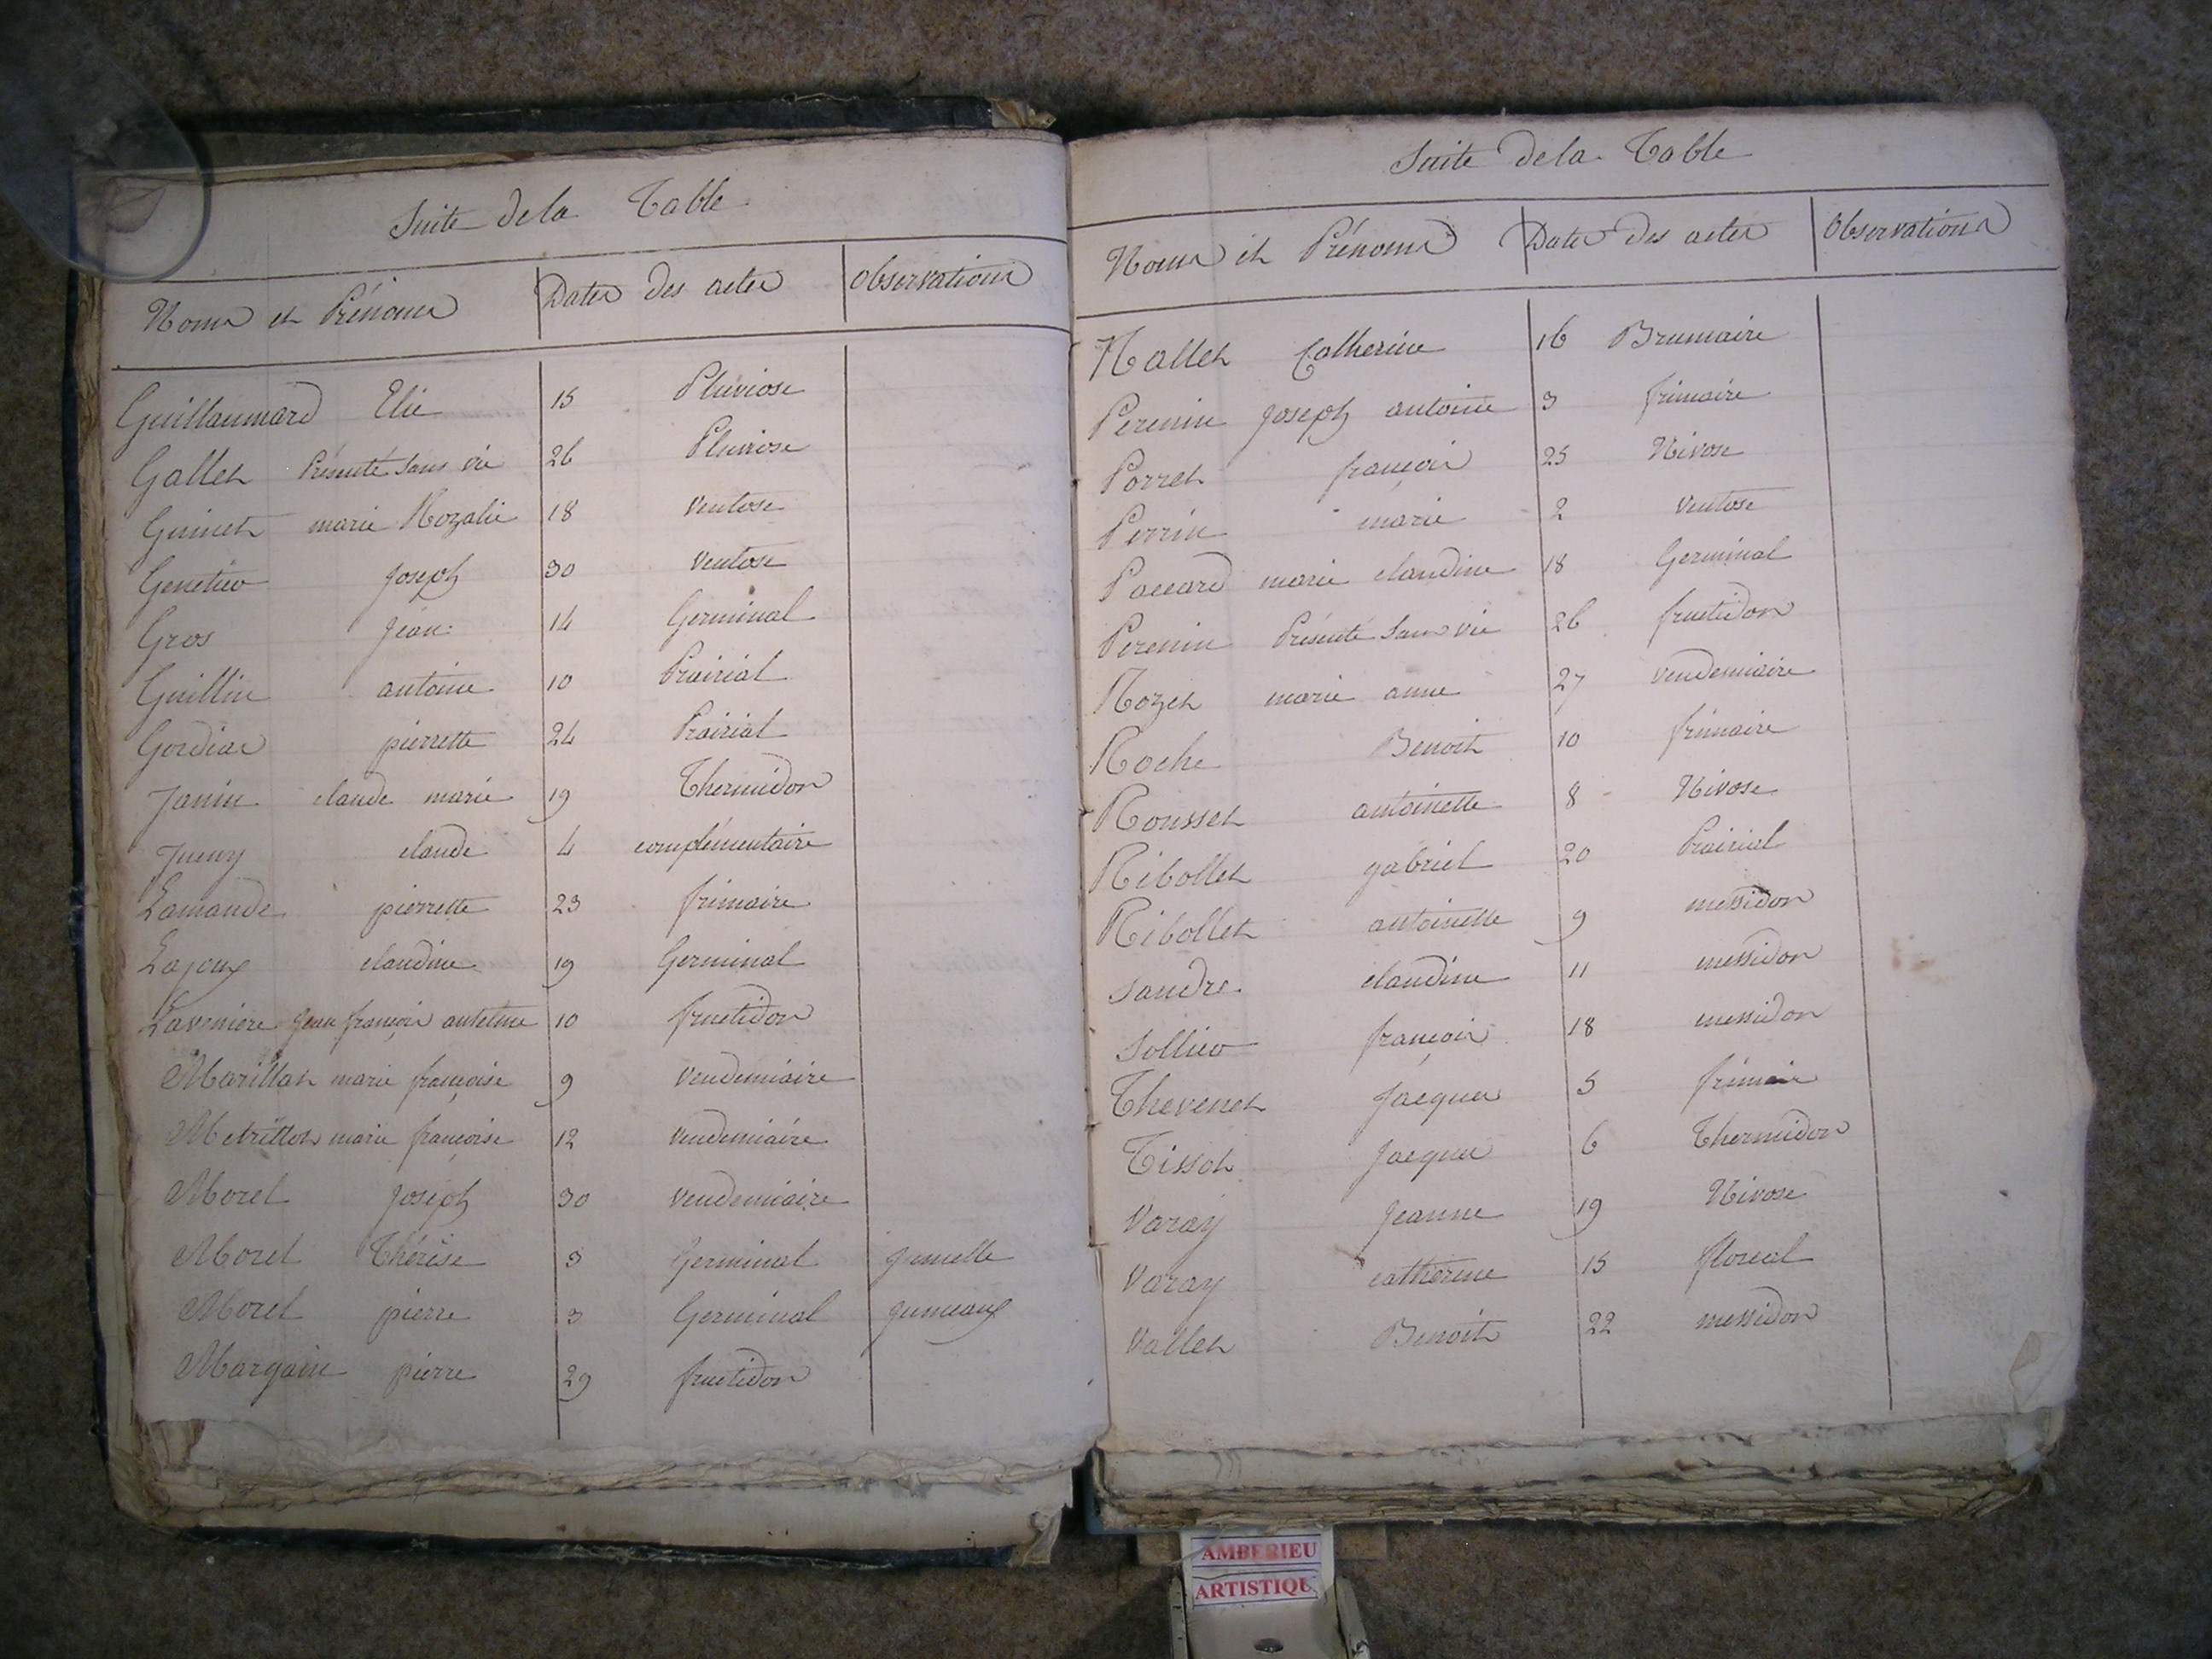 Suite de la Table
Noms et Prénoms Dates des actes Observations
Guillaumard Elie 15 Pluviose
Gallet Présenté Sans vie 26 Pluviose
Guinet marie Rozalie 18 ventose
Genetier Joseph 30 ventose
Gros jean 14 Germinal
Guillin antoine 10 Prairial
Gordiat pierrette 24 Prairial
Janin claude marie 19 Thermidor
claude 4 complémentaire
Lamande pierrette 23 frimaire
Lajoux claudine 19 Germinal
Laveniere Jean françois antelme 10 fructidor
Marillat marie françoise 9 vendemiaire
Metrillot marie françoise 12 vendemiaire
Morel Joseph 30 vendemiaire
Morel Thérèse 3 Germinal gumelle
Morel pierre 3 Germinal gumeaux
Margain pierre 29 fructidor
Suite de la Table
Noms et Prénoms Dates des actes Observations
Nallet Catherine 16 Brumaire
Perenin Joseph antoine 3 frimaire
Porret françois 25 Nivose
Perrin marie 2 ventose
Paccard marie claudine 18 Germinal
Perenin Présenté Sans vie 26 fructidor
Rozet marie anne 27 vendemiaire
Roche Benoit 10 frimaire
Rousset antoinette 8 Nivose
Ribollet gabriel 20 Prairial
Ribollet antoinette 9 messidor
Sandre claudine 11 messidor
Sollier françois 18 messidor
Thevenet Jacques 5 frimaire
Tissot Jacques 6 Thermidor
Varay Jeanne 19 Nivose
Varay catherine 15 floreal
Vallet Benoit 22 messidor
AMBERIEU
ARTISTIQU